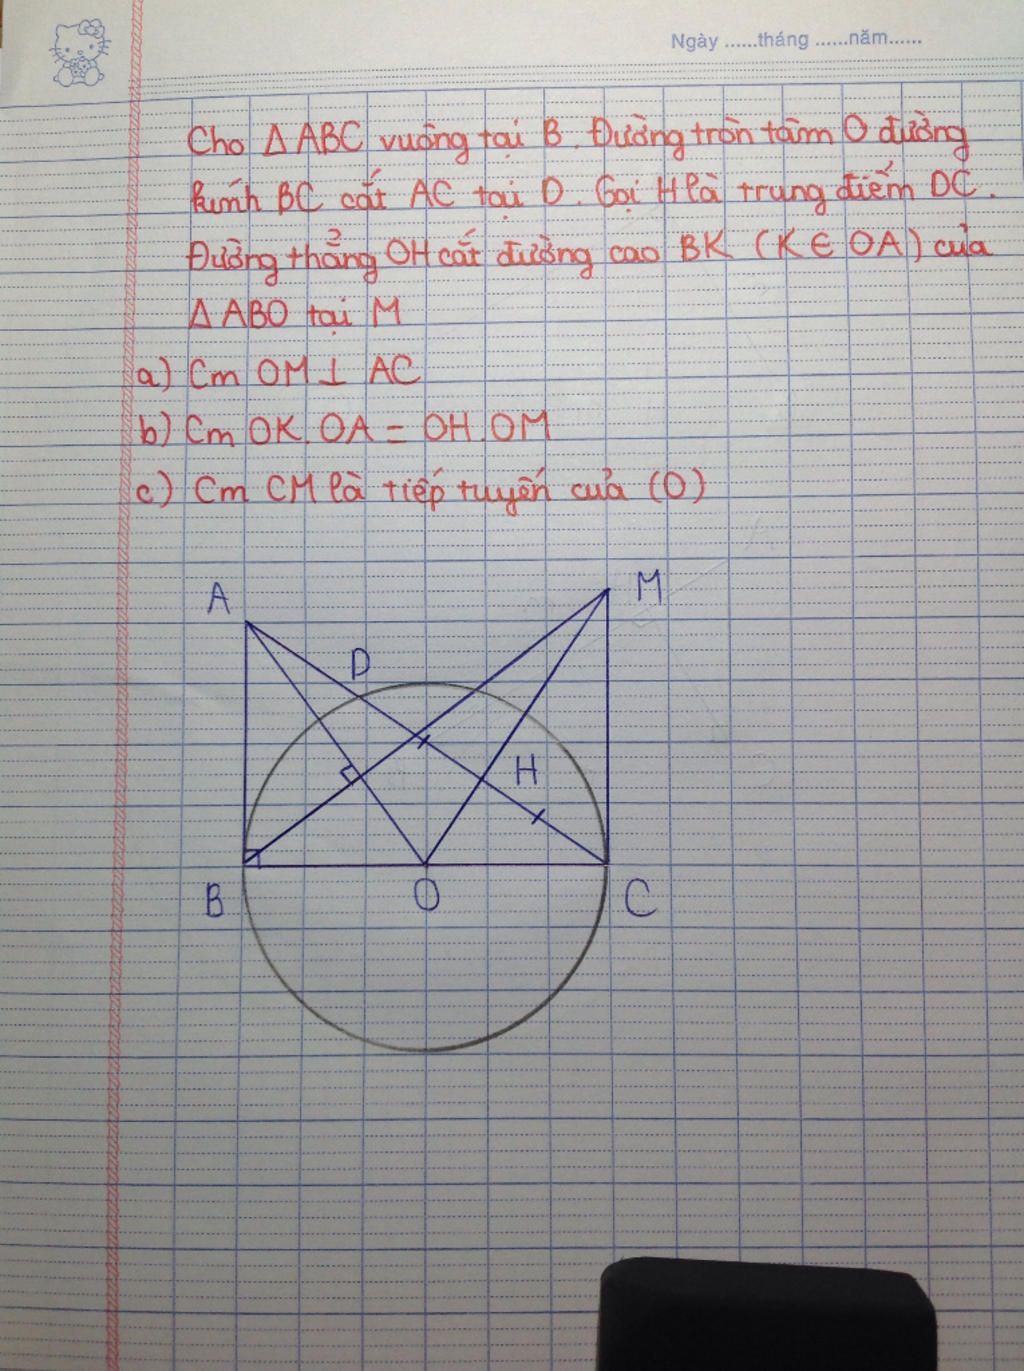 Ngày ......tháng ......năm......
Cho Δ ABC vuông tại B. Đường tròn tâm O đường
kính BC cắt AC tại D. Gọi H là trung điểm DC.
Đường thẳng OH cắt đường cao BK (K ∈ OA) của
Δ ABO tại M
a) Cm OM ⊥ AC
b) Cm OK. OA = OH. OM
c) Cm CM là tiếp tuyến của (O)
A M
D
H
B O C